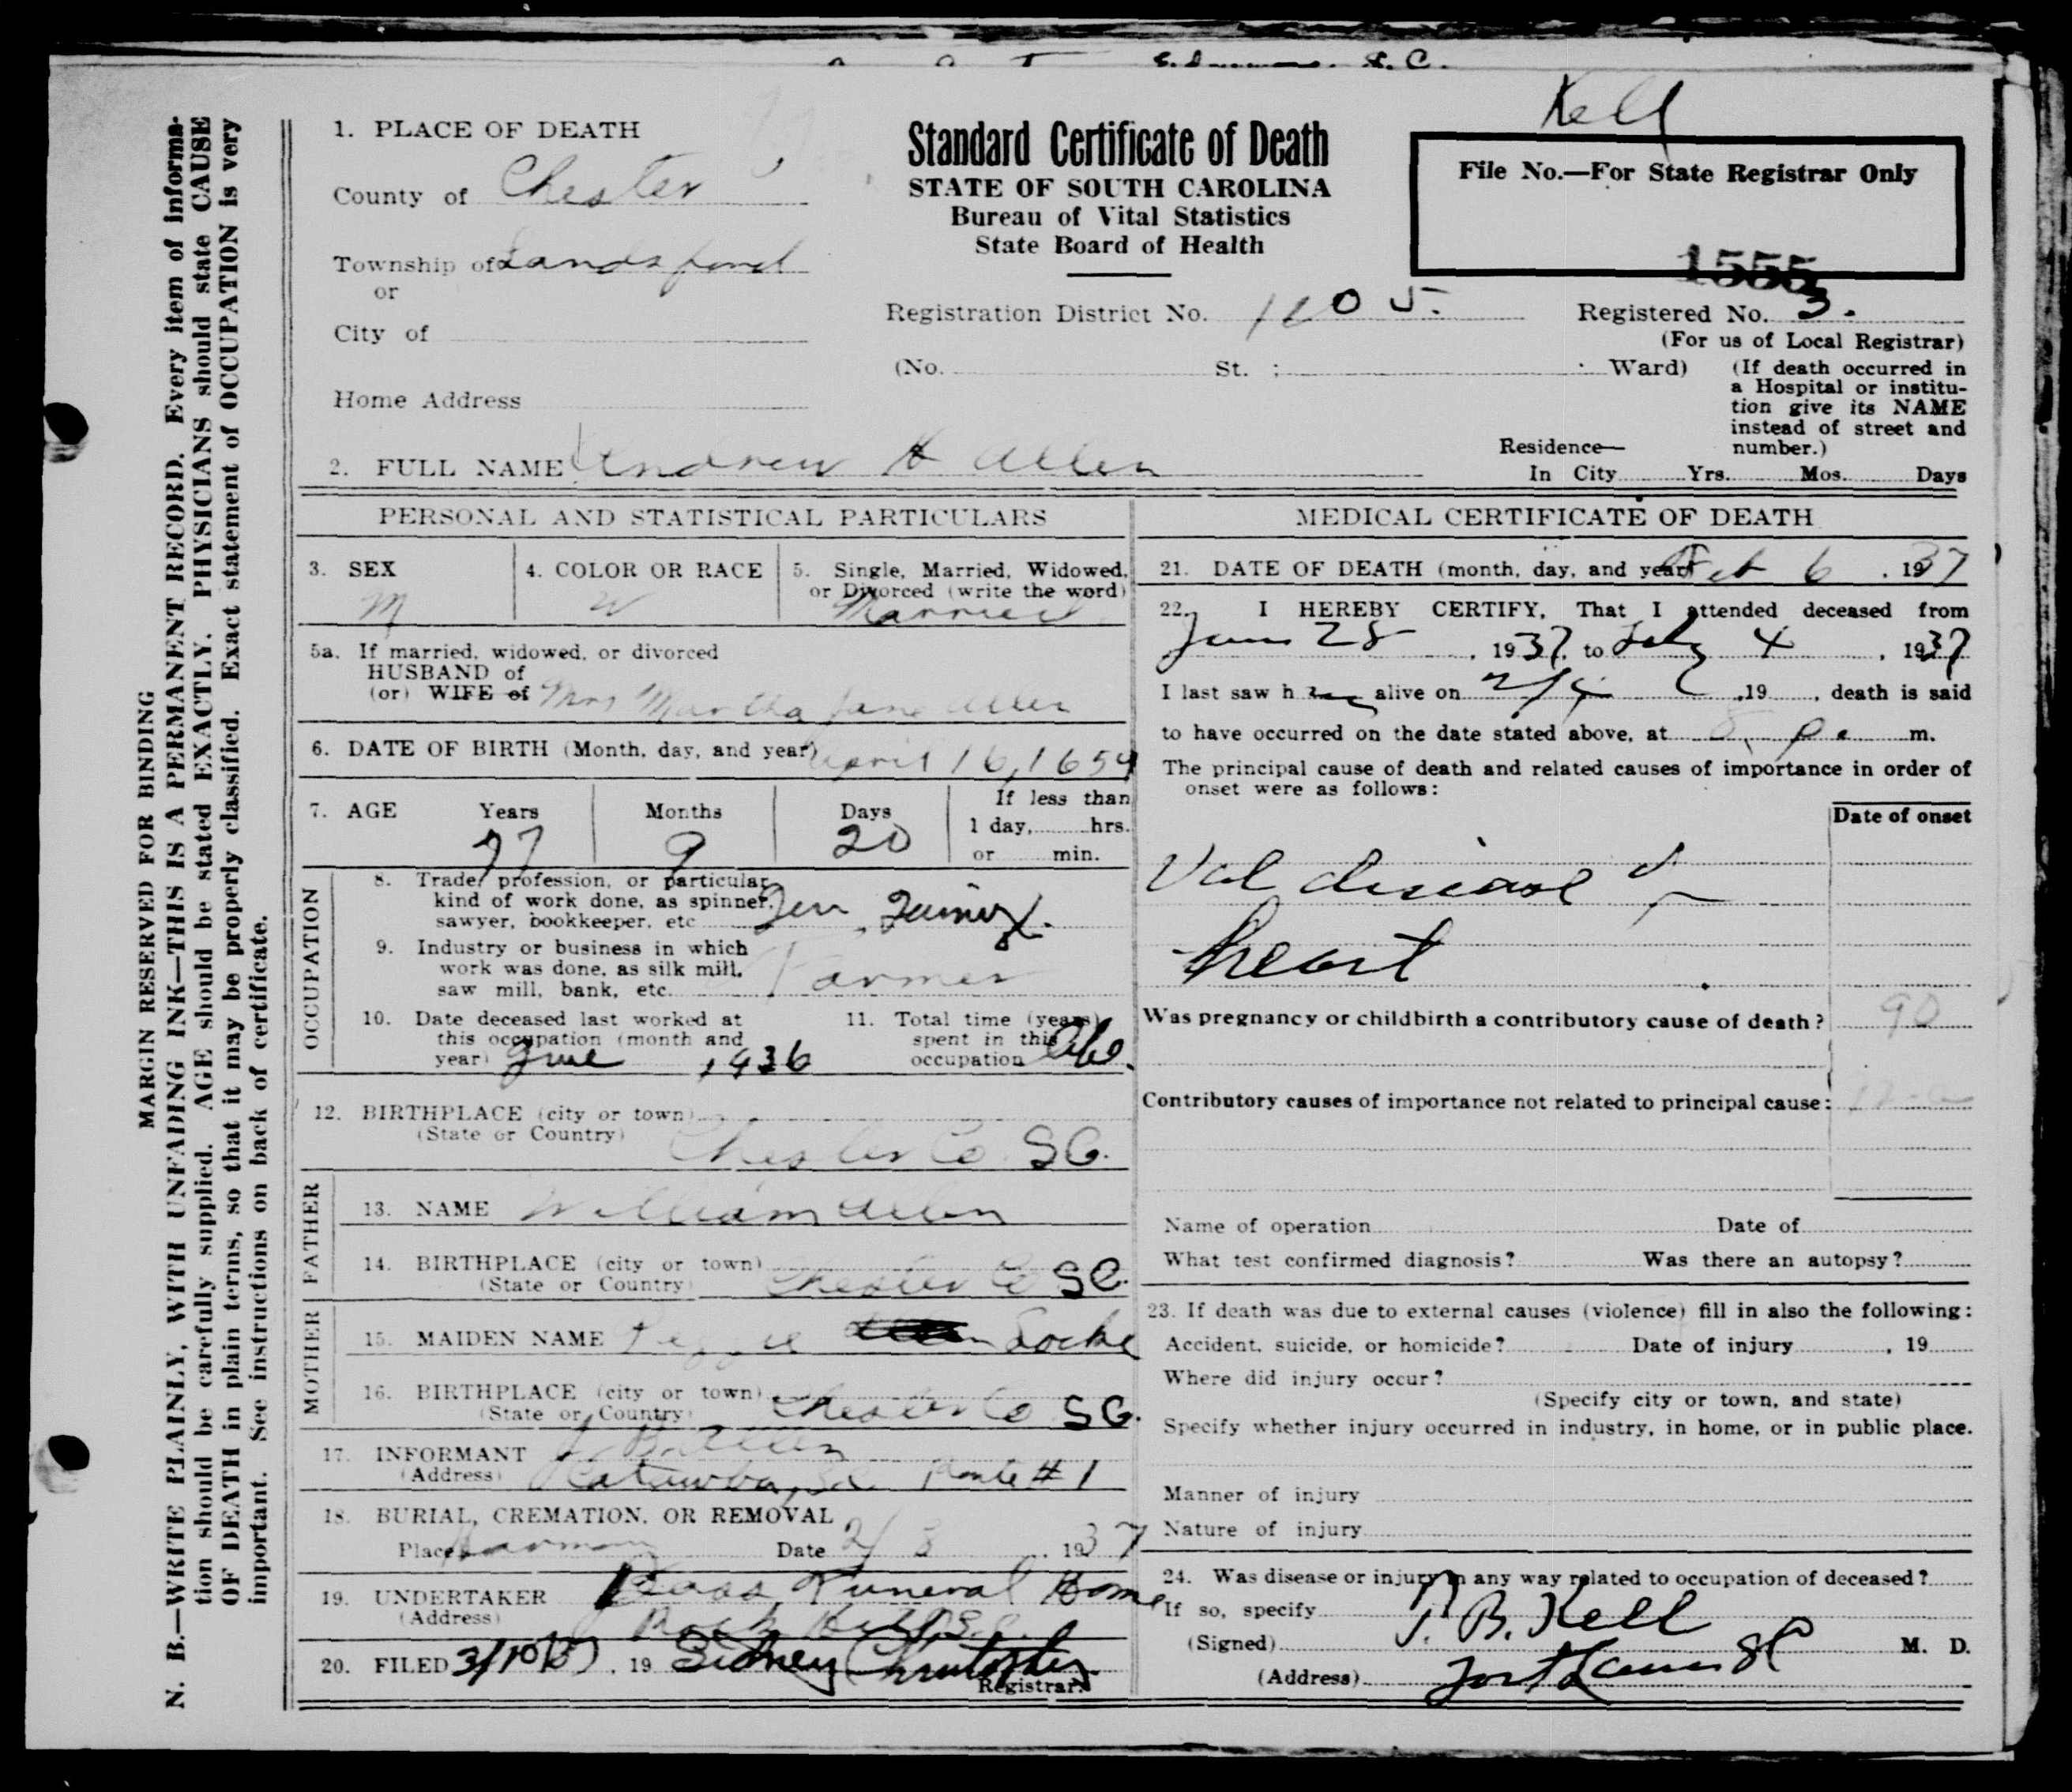 Kell
MARGIN RESERVED FOR BINDING
N. B.—WRITE PLAINLY, WITH UNFADING INK—THIS IS A PERMANENT RECORD. Every item of informa-
tion should be carefully supplied. AGE should be stated EXACTLY. PHYSICIANS should state CAUSE
OF DEATH in plain terms, so that it may be properly classified. Exact statement of OCCUPATION is very
important. See instructions on back of certificate.
1. PLACE OF DEATH
County of Chester
Township of Landsford
or
City of
Home Address
Standard Certificate of Death
STATE OF SOUTH CAROLINA
Bureau of Vital Statistics
State Board of Health
File No.—For State Registrar Only
1555
Registration District No. 1105.
Registered No. 3.
(For us of Local Registrar)
(No. St. ; Ward)
(If death occurred in
a Hospital or institu-
tion give its NAME
instead of street and
number.)
Residence—
In City Yrs. Mos. Days
2. FULL NAME Andrew H Allen
PERSONAL AND STATISTICAL PARTICULARS
3. SEX
M
4. COLOR OR RACE
W
5. Single, Married, Widowed,
or Divorced (write the word)
Married
5a. If married, widowed, or divorced
HUSBAND of
(or) WIFE of Mrs Martha Jane Allen
6. DATE OF BIRTH (Month, day, and year) April 16, 1659
7. AGE Years Months Days
77 9 20
If less than
1 day, hrs.
or min.
OCCUPATION
8. Trade, profession, or particular
kind of work done, as spinner,
sawyer, bookkeeper, etc
9. Industry or business in which
work was done, as silk mill,
saw mill, bank, etc. Farmer
10. Date deceased last worked at
this occupation (month and
year) June 1936
11. Total time (years)
spent in this
occupation
12. BIRTHPLACE (city or town)
(State or Country) Chester Co. SC.
FATHER
13. NAME William Allen
14. BIRTHPLACE (city or town)
(State or Country) Chester Co SC.
MOTHER
15. MAIDEN NAME Peggie Locke
16. BIRTHPLACE (city or town)
(State or Country) Chester Co SC.
17. INFORMANT Allen
(Address) Catawba, S.C. Route #1
18. BURIAL, CREMATION, OR REMOVAL
Place Harmony Date 2/8 1937
19. UNDERTAKER Bass Funeral Home
(Address) Rock Hill, S.C.
20. FILED 3/10/37, 19 Sidney Christopher
Registrar.
MEDICAL CERTIFICATE OF DEATH
21. DATE OF DEATH (month, day, and year) Feb 6, 1937
22. I HEREBY CERTIFY, That I attended deceased from
June 28, 1937, to July 4, 1937
I last saw h alive on 2/4, 19, death is said
to have occurred on the date stated above, at 8 p. m.
The principal cause of death and related causes of importance in order of
onset were as follows:
Date of onset
Val disease of
heart
Was pregnancy or childbirth a contributory cause of death?
90
Contributory causes of importance not related to principal cause:
Name of operation Date of
What test confirmed diagnosis? Was there an autopsy?
23. If death was due to external causes (violence) fill in also the following:
Accident, suicide, or homicide? Date of injury, 19
Where did injury occur?
(Specify city or town, and state)
Specify whether injury occurred in industry, in home, or in public place.
Manner of injury
Nature of injury
24. Was disease or injury in any way related to occupation of deceased?
If so, specify
(Signed) B. Kell M. D.
(Address) Fort Lawn SC